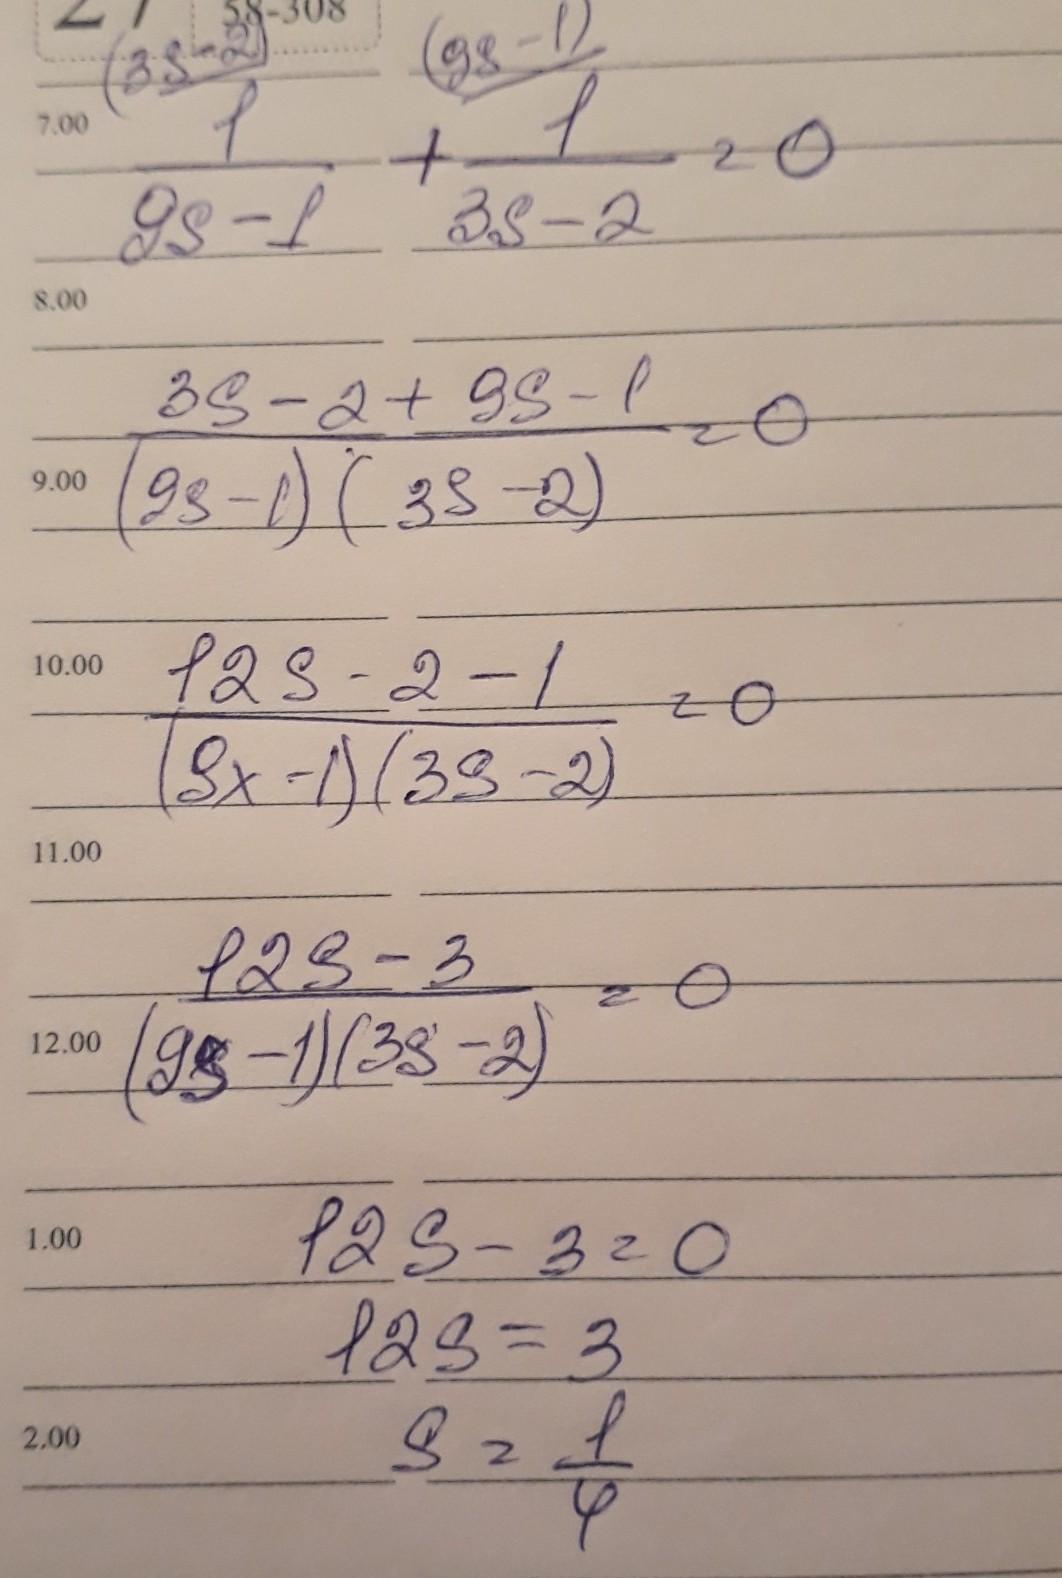 58-308
(3s-2) (9s-1)
7.00 1/(9s-1) + 1/(3s-2) = 0
8.00
(3s-2+9s-1)/((9s-1)(3s-2)) = 0
9.00
10.00 (12s-2-1)/((9x-1)(3s-2)) = 0
11.00
(12s-3)/((9s-1)(3s-2)) = 0
12.00
1.00 12s-3=0
12s=3
2.00 s=1/4